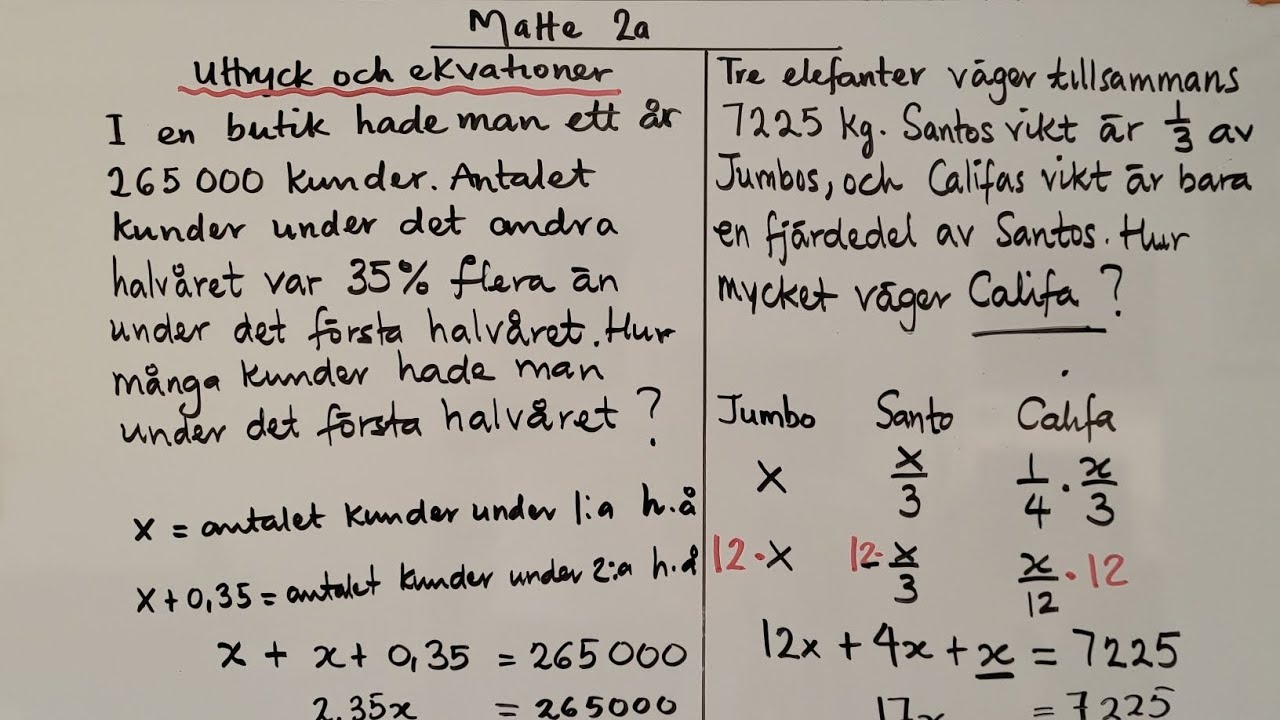 Matte 2a
Uttryck och ekvationer
I en butik hade man ett år
265 000 kunder. Antalet
kunder under det andra
halvåret var 35% flera än
under det första halvåret. Hur
många kunder hade man
under det första halvåret ?
x = antalet kunder under 1:a h.å
x + 0,35 = antalet kunder under 2:a h.å
x + x + 0,35 = 265 000
2,35x = 265000
Tre elefanter väger tillsammans
7225 kg. Santos vikt är 1/3 av
Jumbos, och Califas vikt är bara
en fjärdedel av Santos. Hur
mycket väger Califa ?
Jumbo Santo Califa
x x/3 1/4 · x/3
12·x 12·x/3 x/12 · 12
12x + 4x + x = 7225
17x = 7225